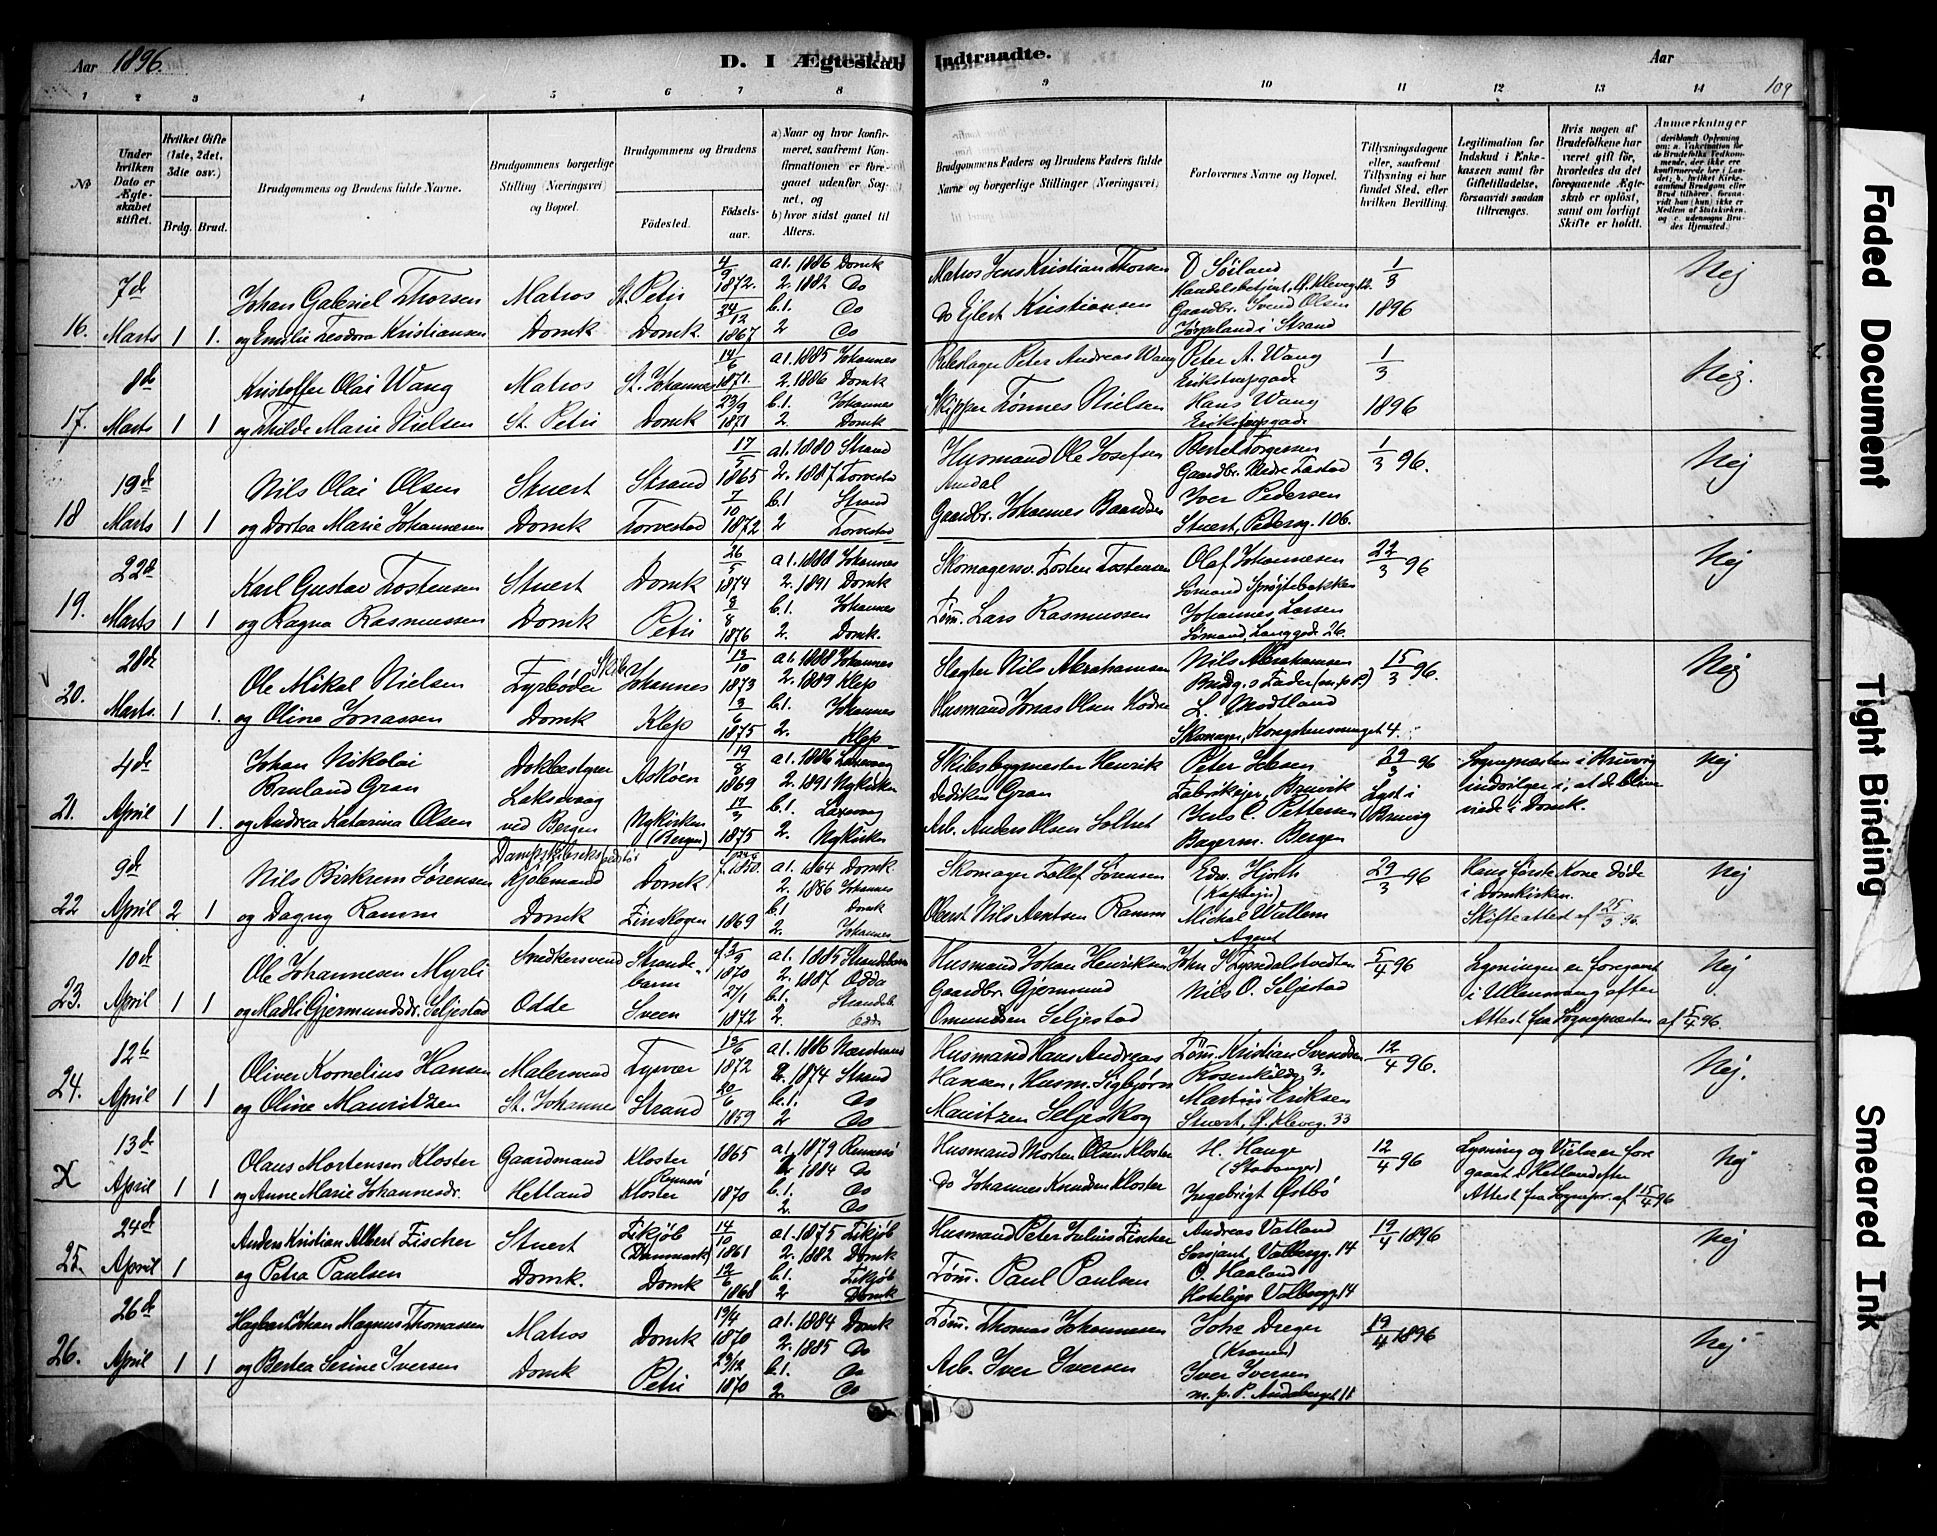 Aar 1896.
D. I Ægteskab Indtraadte.
Aar
109
1 2 3 4 5 6 7 8 9 10 11 12 13 14
№
Under hvilken Dato er Ægteskabet stiftet.
Hvilket Gifte (1ste, 2det, 3die osv.)
Brdg. Brud.
Brudgommens og Brudens fulde Navne.
Brudgommens borgerlige Stilling (Næringsvei) og Bopæl.
Brudgommens og Brudens
Födested.
Födselsaar.
a) Naar og hvor konfirmeret, saafremt Konfirmationen er foregaaet udenfor Sognet, og
b) hvor sidst gaaet til Alters.
Brudgommens Faders og Brudens Faders fulde Navne og borgerlige Stillinger (Næringsvei)
Forlovernes Navne og Bopæl.
Tillysningsdagene eller, saafremt Tillysning ei har fundet Sted, efter hvilken Bevilling.
Legitimation for Indskud i Enkekassen samt for Giftetilladelse, forsaavidt saadan tiltrænges.
Hvis nogen af Brudefolkene har været gift för, hvorledes da det foregaaende Ægteskab er oplöst, samt om lovligt Skifte er holdt.
Anmærkninger
16. 7de Marts 1 1.
Johan Gabriel Thorsen
og Emilie Teodora Kristiansen
Matros
Domk
St. Petri
Domk.
4/9 1872.
24/12 1867
a1. 1886 Domk
2. 1882 Do
b.1 Do
2 Do
Matros Jens Kristian Thorsen
Do Ejlert Kristiansen
O Sörland
Handelsbetjent, Ø. Kleveg. 12.
Gaardbr. Svend Olsen
Jørpeland i Strand
1/3 1896
Nej
17. 8de Marts 1 1
Kristoffer Olai Wang
og Thilde Marie Nielsen
Matros
St. Petri
St. Johannes
Domk
14/6 1871.
23/9 1871
a1. 1885 Johannes
2. 1886 Domk
b.1. Johannes
2. Domk
Rebslager Peter Andreas Wang
Skipper Tönnes Nielsen
Peter A. Wang
Erikstrapsgade
Hans Wang
Erikstrapsgade
1/3 1896
Nej.
18 19de Marts 1 1
Nils Olai Olsen
og Dortea Marie Johannesen
Stuert
Domk
Strand
Torvestad
17/5 1865
7/10 1872
a1. 1880 Strand
2. 1887 Torvestad
b.1 Strand
2 Torvestad
Husmand Ole Josefsen
Gaardbr. Johannes Baardsen
Bertel Torgersen
Iver Pedersen
Stuert, Pedersg. 106.
1/3 96.
Nej
19. 22de Marts 1 1
Karl Gustav Tostensen
og Ragna Rasmussen
Stuert
Domk
Domk
Petri
26/5 1874
8/8 1876
a1. 1888 Johannes
2. 1891 Domk
b.1. Johannes
2. Domk.
Skomagersv. Tosten Tostensen
Töm. Lars Rasmussen
Olaf Johannesen
Sömand Sprøitebakken
Johannes Larsen
Sömand, Langgade 26.
22/3 96
Nej
20. 28de Marts. 1 1.
Ole Mikal Nielsen
og Oline Jonassen
Fyrböder
Domk
Johannes
Klep
13/10 1873
13/6 1875
a1. 1888 Johannes
2. 1889 Klep
b.1. Johannes
2. Klep
Slagter Nils Abrahamsen
Husmand Jonas Olsen
Nils Abrahamsen
Brudg.s Fader (m.p.P.)
Skomager, Kongstensvinget 4.
15/3 96.
Nej
21. 4de April 1 1.
Johan Nikolai
Bruland Gran
og Andrea Katarina Olsen
Dokbestyrer
Laksevaag
ved Bergen
Askøen
Nykirken
(Bergen)
19/8 1869
17/3 1875
a1. 1886 Laxevaag
2. 1891 Nykirken
b.1. Laxevaag
2. Nykirken
Skibsbygmester Henrik
Dediken Gran
Arb. Anders Olsen
Peter Jebsen
Fabrikejer, Bruvik
Jens C. Pettersen
Bagerm. Bergen
29/3 96
Lyst i
Bruvig
Sognepresten i Bruvig
indvilger i, at de blive
viede i Domk.
Nej
22 9de April 2 1
Nils Birkrem Sörensen
og Dagny Ramm
Dampskibsekspeditör
Kjølemand
Domk
Domk
1850.
1869
a1. 1864 Domk
2. 1886 Johannes
b.1 Domk
2. Johannes
Skomager Tollef Sörensen
Nils Arntsen Ramm
Edv. Hjorth
(Kaptejn)
Michal Wallem
Agent
29/3 96
Hans første Kone døde
i Domkirken.
Skifteattest af 25/3 96.
Nej
23. 10de April 1 1
Ole Johannesen Myrli
og Madli Gjermundsdr. Seljestad
Snedkersvend
Odde
Strandebarm
Sveen
1870
27/1 1872
a1. 1885 Strandebarm
2. 1887 Odda
b.1. Strandeb
2. Odda
Husmand Johan Henriksen
Gaardbr. Gjermund
Omundsen Seljestad
John S Tyssedalstvedten
Nils O. Seljestad
5/4 96
Lysningen er foregaaet
i Ullensvang efter
Attest fra Sognepresten af 5/4 96.
Nej
24. 12te April 1 1
Oliver Kornelius Hansen
og Oline Mauritzen
Malersvend
St. Johannes
Tysvær
Strand
19/6 1872
20/6 1859
a1. 1886 Nærstrand
2. 1874 Strand
b.1. Do
2 Do
Husmand Hans Andreas
Hansen, Husm. Sigbjørn
Mauritzen Seljeskog
Töm. Kristian Svendsen
Rosenkildeg 3.
Martin Eriksen
Stuert, Ø. Kleveg. 33
12/4 96.
Nej.
X 13de April 1 1
Olaus Mortensen Kloster
og Anne Marie Johannesdr.
Gaardmand
Hetland
Kloster
Kloster
1865
1870
a1. 1879 Rennesö
2. 1884 Do
b.1. Do
2. Do
Husmand Morten Olsen Kloster
Do Johannes Knudsen Kloster
H. Hauge
(Stavanger)
Ingebrigt Østbö
12/4 96
Lysning og Vielse er foregaaet i Hetland efter
Attest fra Sognepr. af 15/4 96
Nej
25. 24de April 1
Anders Kristian Albert Fischer
og Petra Paulsen
Stuert
Domk.
Tikjöb
(Danmark)
Domk
14/10 1861
12/6 1868
a1. 1875 Tikjöb
2. 1882 Domk
b.1. Tikjöb
2 Domk
Husmand Peter Julius Fischer
Töm. Paul Paulsen
Andreas Vatland
Sersjant, Valbergg. 14
O. Haaland
Hotelejer Valbergg. 14
19/4 1896
Nej
26. 26de April 1 1
Hagbart Johan Magnus Thomassen
og Bertea Serine Iversen
Matros
Domk
Domk
Petri
19/4 1870
23/12 1870
a1. 1884 Domk
2. 1885 Do
b.1. Do
2. Do
Töm. Thomas Johannesen
Arb. Iver Iversen
Johs Dreger
(Kranen)
Iver Iversen
m. p. P.
19/4 1896
Nej
Faded Document
Tight Binding
Smeared Ink